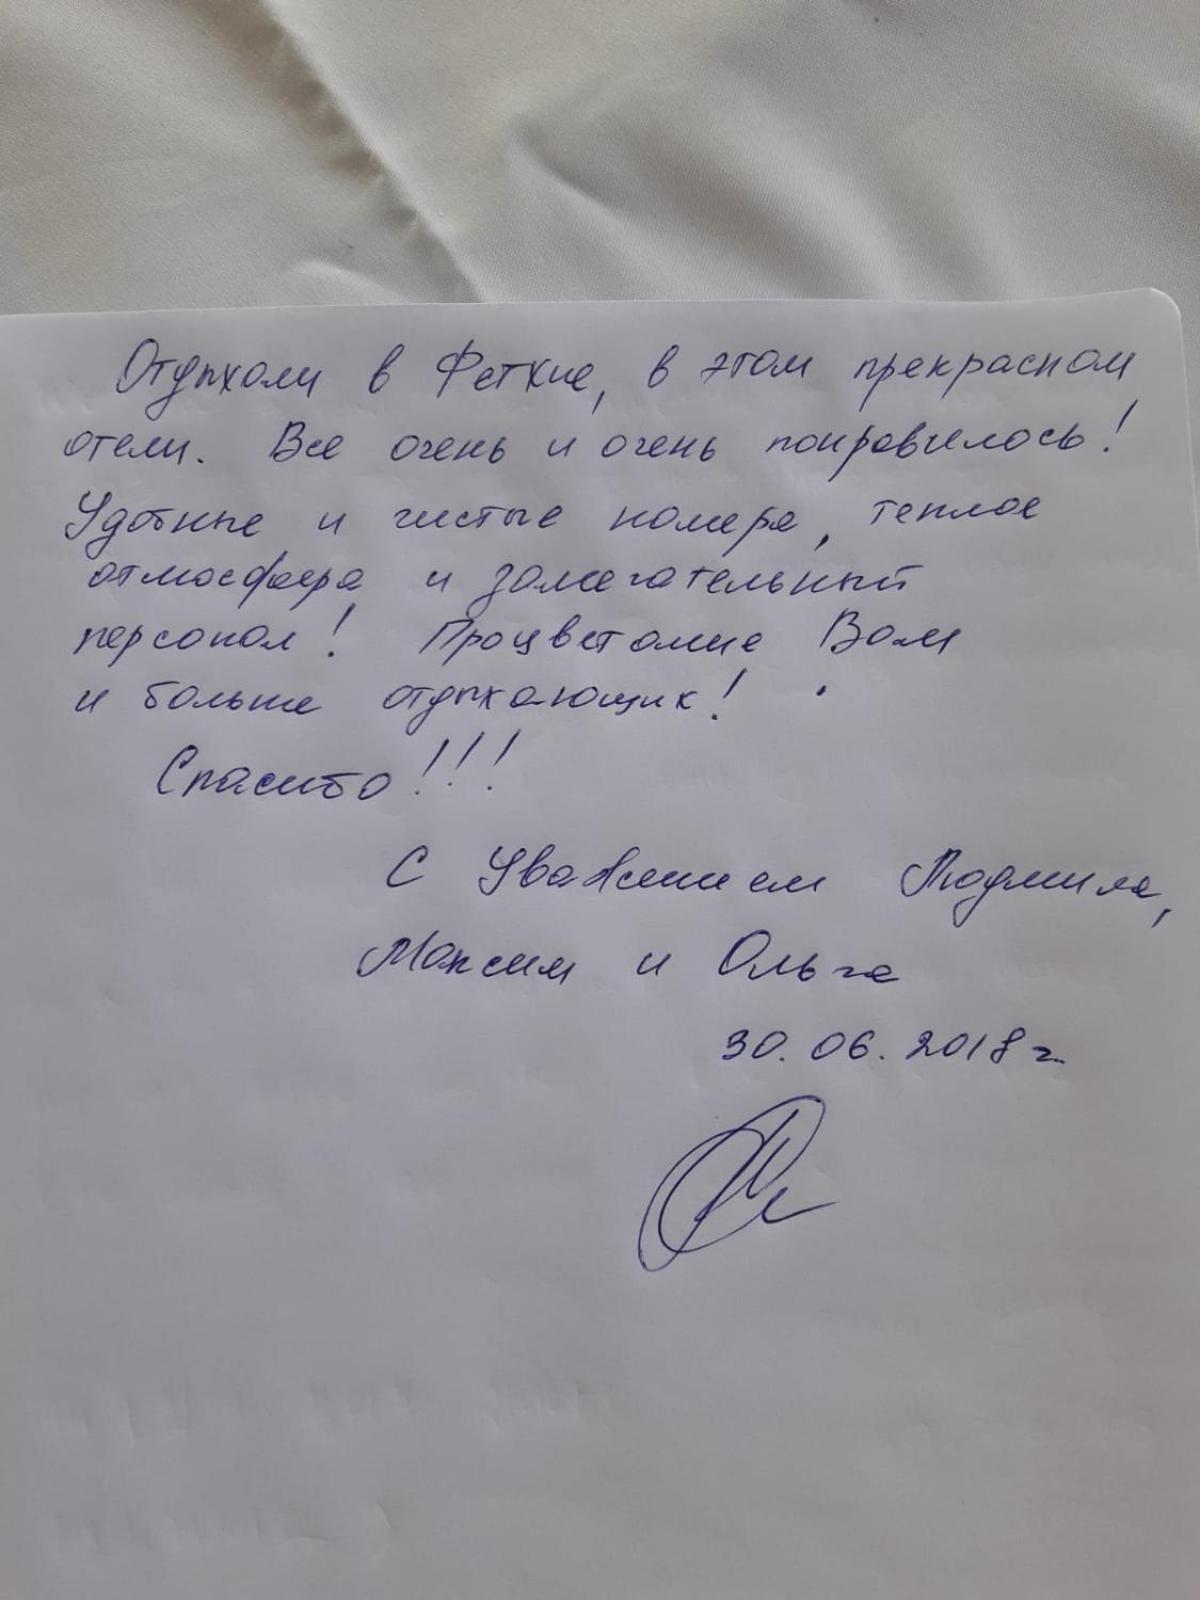 Отдыхали в Фетхие, в этом прекрасном
отели. Все очень и очень понравилось!
Удобные и чистые номера, теплое
атмосфера и замечательный
персонал! Процветание Вам
и больше отдыхающих!
Спасибо!!!
С Уважением Людмила,
Максим и Ольга
30.06.2018 г.